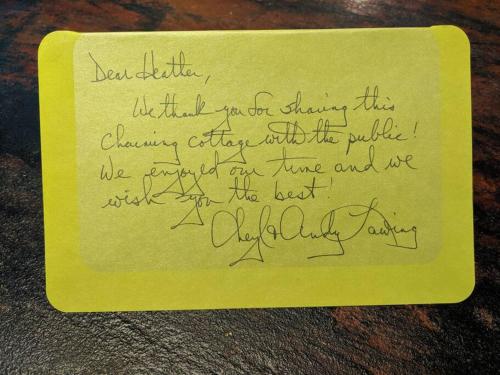 Dear Heather,
We thank you for sharing this
charming cottage with the public!
We enjoyed our time and we
wish you the best!
Cheryl & Andy Lawing